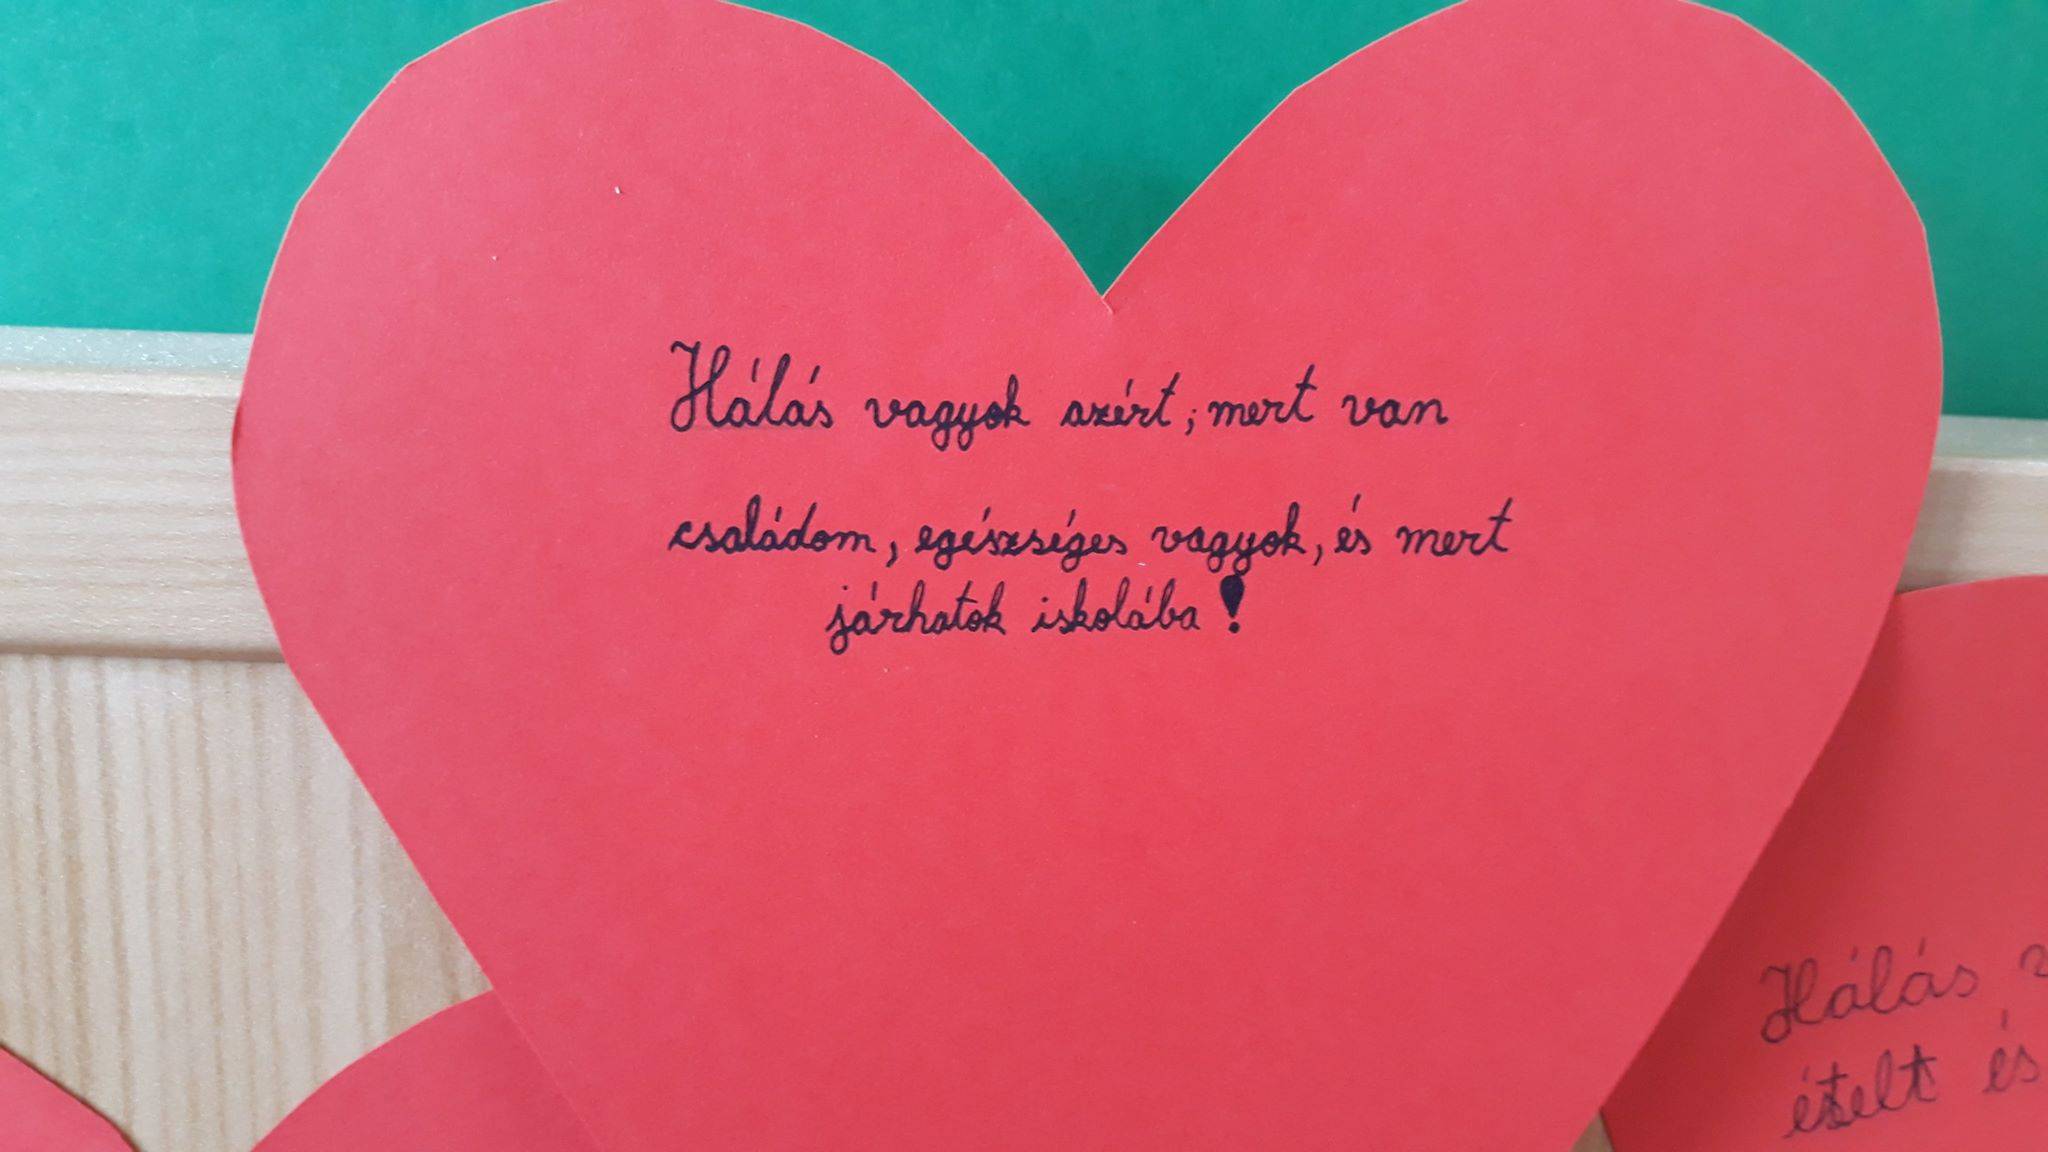 Hálás vagyok azért, mert van
családom, egészséges vagyok, és mert
járhatok iskolába!
Hálás
ételt és